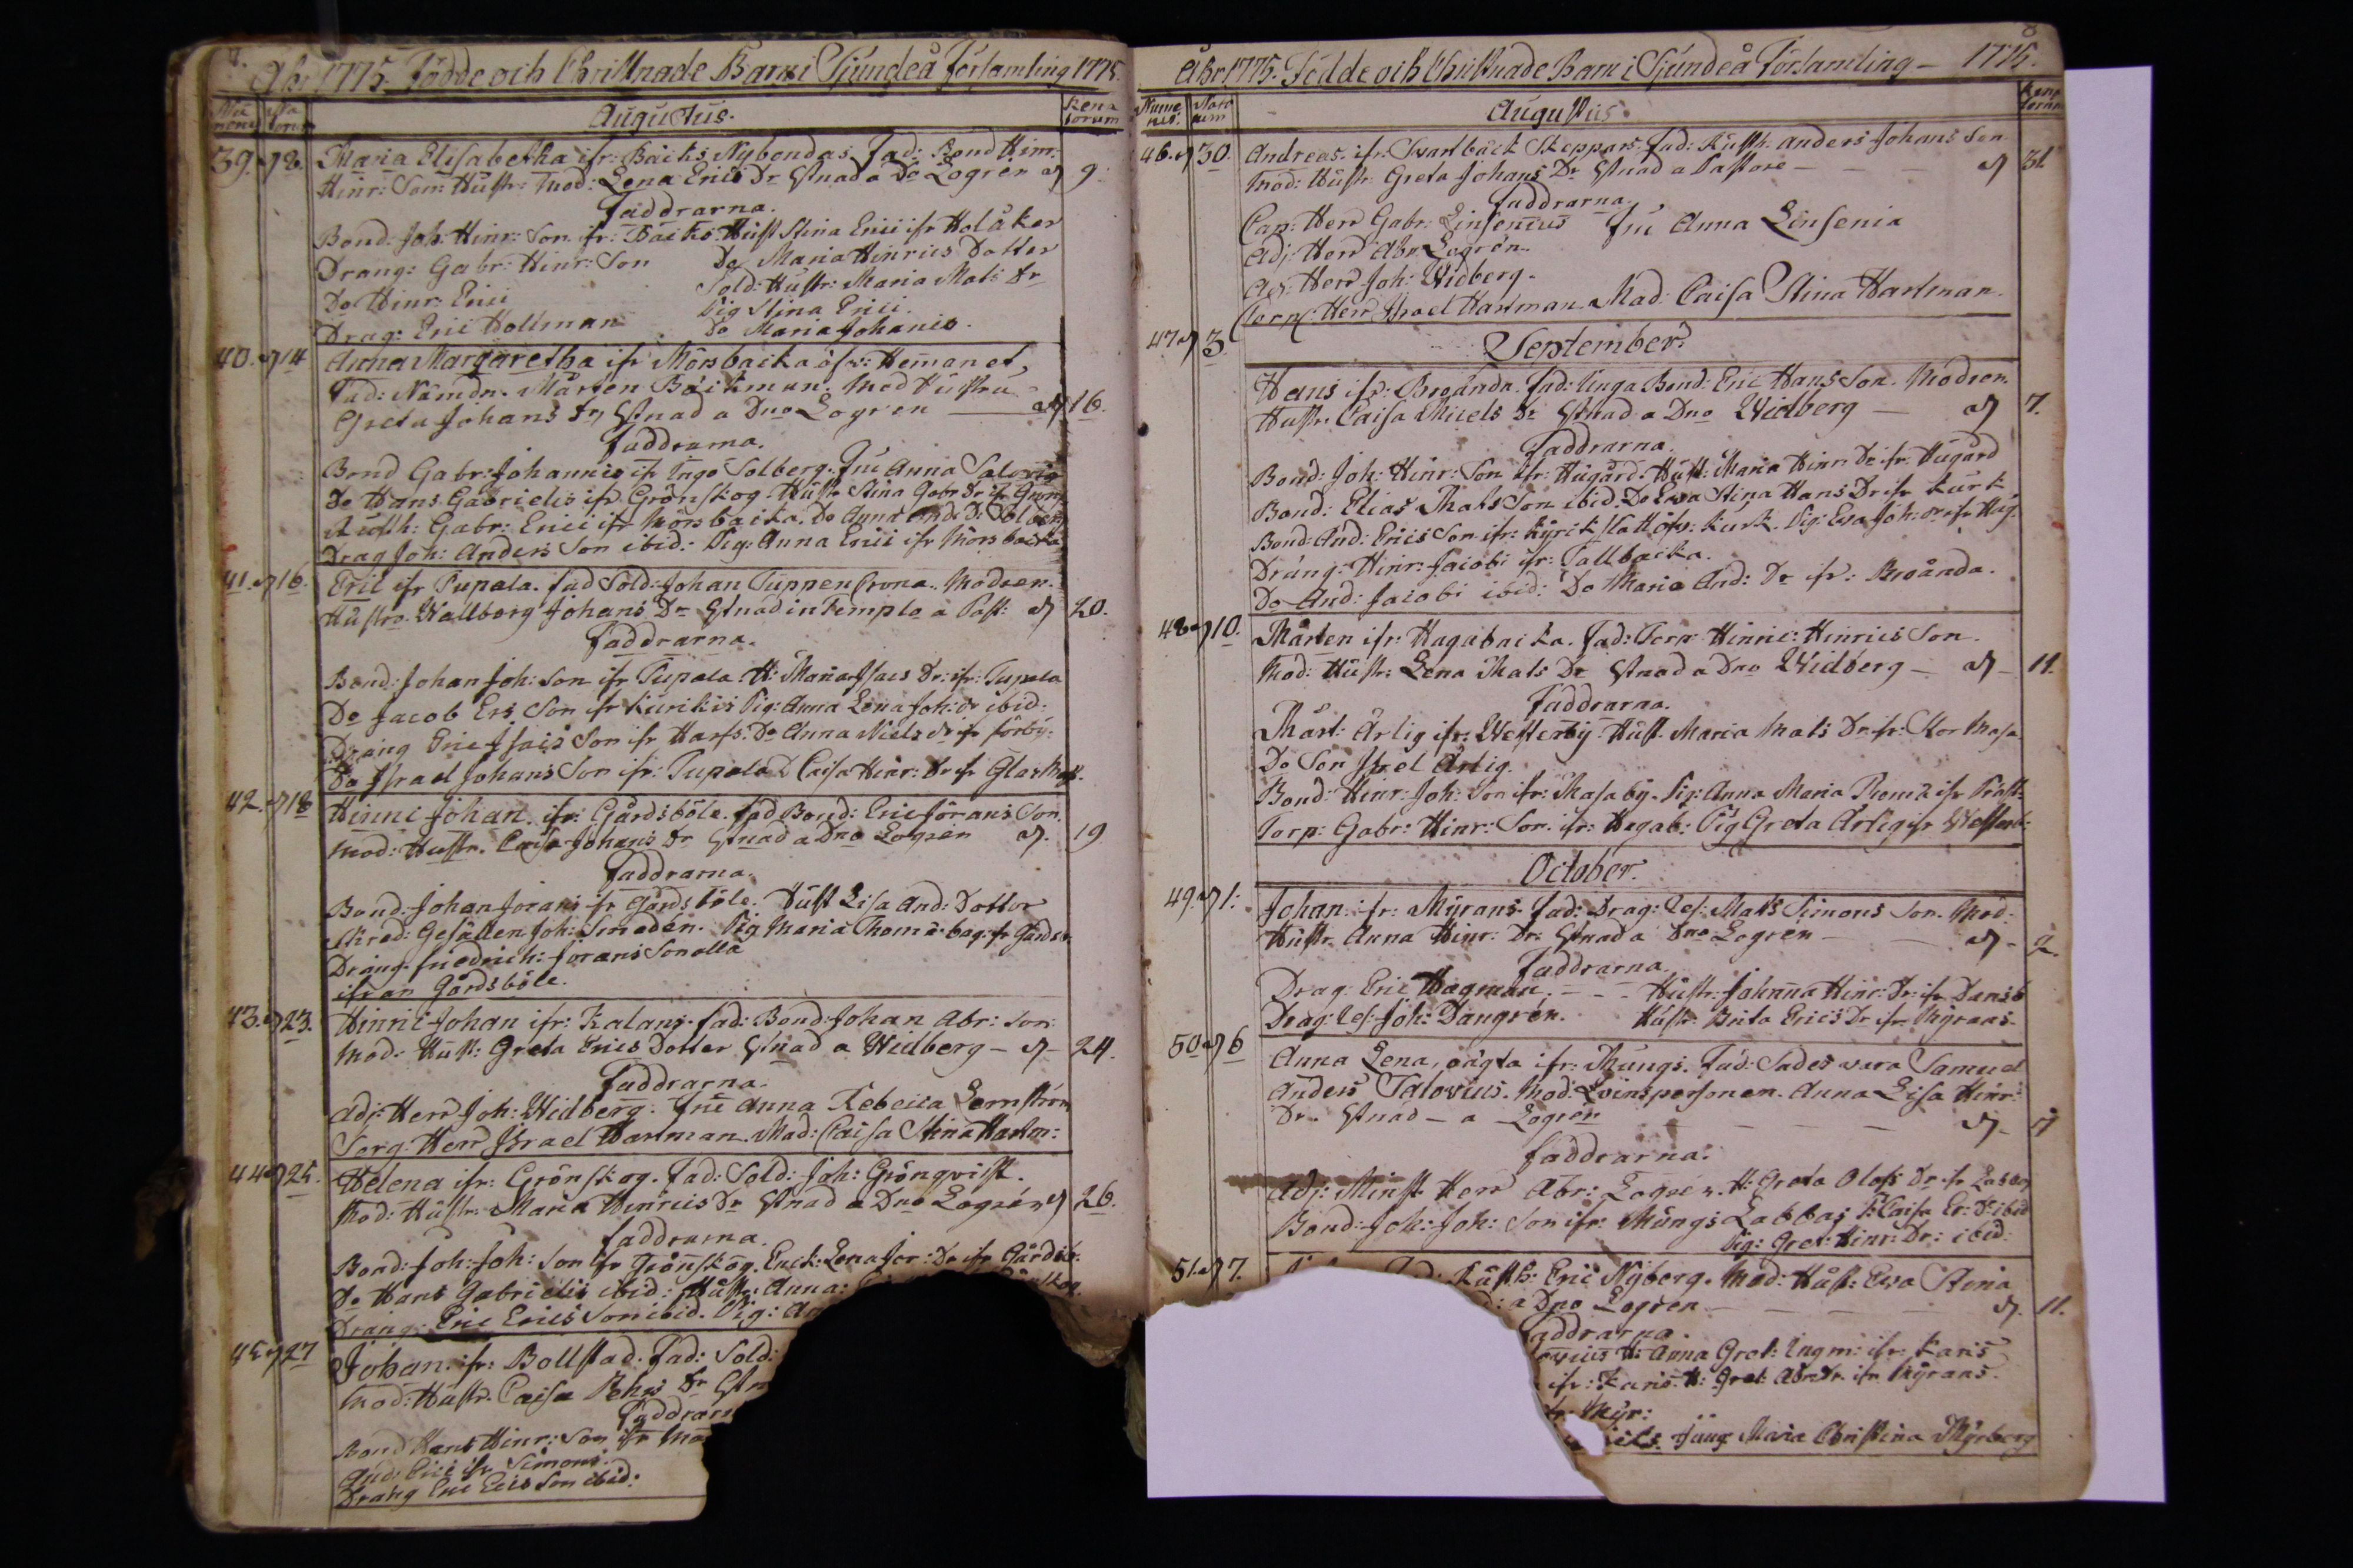 Åhr 1775. Födde och Christnade Barn i Sjundeå Församling 1775.
Augustus.
39. d 8. Maria Elisabetha ifr: Bäcks Nybondas Fad: Bond Hinr:
Hinr: Son: Hustr: Mod: Lena Erics Dr Gstnad a Do Logren d 9.
Faddrarna.
Bond: Joh: Hinr: Son ifr: Bäcks Hust Stina Erici ifr Holåker
Dräng: Gabr: Hinr: Son Do Maria Hinrics Dotter
Do Hinr: Erici Sold: Hustr: Maria Mats Dr
Drag: Eric Hollman Pig Stina Erici.
Do Maria Johanis.
40. d 14 Anna Margaretha ifr Mörsbacka öfv: Hemanet
Fad: Nämdn. Mårten Bäckman. Mod Hustru
Greta Johans Dr, Gstnad a Dno Logren d 16.
Faddrarna.
Bond Gabr: Johannis ifr Ingo Solberg. Fru Anna
Do Hans Gabrielis ifr Grönskog. Hustr Stina Gabr Dr ifr Grönsk
Rusth: Gabr: Erici ifr Mörsbacka. Do Anna And: Dr
Drag Joh: Anders Son ibid: Pig: Anna Erici ifr Mörsbacka
41. d 16. Eric ifr Tupala. Fad Sold: Johan Tuppen Crona. Modren.
Hustro. Wallborg Johans Dr Gstnad in Templo a Past: d 20.
Faddrarna.
Bond: Johan Joh: Son ifr Tupala H: Maria Isacs Dr: ifr: Tupala
Do Jacob Ers Son ifr Kurikis Pig: Anna Lena Joh: Dr ibid:
Dräng Eric Isacs Son ifr Harfs. Do Anna Niels Dr ifr Förby:
Do Israel Johans Son ifr: Tupala D Caisa Hinr: Dr ifr Glas
42. d 18 Hinric Johan ifr: Gårdsböle. fad Bond: Eric Jörans Son.
Mod: Hustr. Caisa Johans Dr Gstnad a Dno Logren d. 19
Faddrarna.
Bond: Johan Jorans ifr Gårdsböle. Hust Lisa And: Dotter
Skred: Gesällen Joh: Smeden. Pig Maria Thom
Dräng: friedrich: Jörans Son alla
ifrån Gårdsböle.
43. d 23. Hinric Johan ifr: Kalans. fad: Bond: Johan Abr: Son:
Mod: Hust: Greta Erics Dotter Gstnad a Widberg - d - 24.
Faddrarna.
Adj: Herr Joh: Widberg. Fru Anna Rebecca Lernström
Torg: Herr Israel Hartman. Mad: Caisa Stina Hartm:
44 d 25. Helena ifr: Grönskog. Fad: Sold: Joh: Grönqvist.
Mod: Hustr: Maria Hinrics Dr Gstnad a Dno Logrén d 26.
Faddrarna.
Bond: Joh: Joh: Son ifr Grönskog. Enck: Lena Jör: Dr ifr Gårdsb:
Do Hans Gabrielis ibid: Hustr: Anna:
Dräng: Eric Erics Son ibid. Pig: An
45 d 27 Johan. ifr: Bollstad. Fad: Sold:
Mod: Hustr. Caisa Pehrs Dr Gstn
Faddrarn
Bond Hans Hinr: Son ifr
And: Erici ifr Simons.
Dräng Eric Erics Son ibid:
8
Åhr 1775. Födde och Christnade Barn i Sjundeå Församling - 1775.
Nume rus. Nato rum Augustus. Renatorum
46. d 30. Andreas. ifr: Svartbäck Skeppars. Fad: Rusth: Anders Johans Son
Mod: Hustr Greta Johans Dr Gstnad a Pastore - - - d 31.
Faddrarna.
Cap: Herr Gabr: Linsenius Fru Anna Linsenia
Adj: Herr Abr: Logrén.
Herr Joh: Widberg.
Herr Israel Hartman. Mad: Caisa Stina Hartman.
47 d 3. September.
Hans ifr: Broända. fad: Unga Bond: Eric Hans Son. Modren.
Hustr. Caisa Micels Dr Gstnad a Dno Widberg - d 7.
Faddrarna.
Bond: Joh: Hinr: Son ifr: Hugård. Hust: Maria Hinr: Dr ifr: Hugård
Bond: Elias Mats Son ibid. Do Ewa Stina Hans Dr ifr Kurk
Bond: And: Erics Son ifr: Kyrkslätt öfv: Kurk. Pig: Ewa Joh: Dr ifr Hug.
Dräng: Hinr: Jacobi ifr: Tallbacka.
Do And: Jacobi ibid: Do Maria And: Dr ifr: Broända.
48 d 10. Mårten ifr: Hagabacka. Fad: Torp: Hinric: Hinrics Son.
Mod: Hustr: Lena Mats Dr Gstnad a Dno Widberg - d - 11.
Faddrarna.
Mårt: Ärlig ifr: Westerby. Hust. Maria Mats Dr ifr: Stor Masa
Do Son Israel Ärlig.
Bond: Hinr: Joh: Son ifr: Masaby. Pig: Anna Maria ifr Präst:
Torp: Gabr: Hinr: Son. ifr: Hagab: Pig Greta Ärlig ifr Westerb:
October.
49. d 1: Johan: ifr: Myrans. Fad: Drag: Matts Simons Son. Mod:
Hustr Anna Hinr: Dr: Gstnad a Dno Logren - - d - 2.
Faddrarna.
Drag: Eric Hagman. - - - Hustr: Johanna Hinr: Dr ifr
Drag: Joh: Dangrén. Hustr Brita Erics Dr ifr Myrans.
50 d 6 Anna Lena, oägta ifr: Mungs. Fad: Sades vara Samuel
Anders Talovius. Mod: Qvinspersonen. Anna Lisa Hinr:
Dr. Gstnad - a Logrén - - - d - 7
Faddrarna.
Adj: Minist Herr Abr: Logrén. H: Greta Olofs Dr ifr
Bond: Joh: Joh: Son ifr: Mungs Labbas P: Caisa Er: Dr ibid
Pig: Gret: Hinr: Dr: ibid:
51. d 7. Rusth: Eric Nyberg. Mod: Hust: Ewa Stina
a Dno Logren - - - d. 11.
addrarna.
H: Anna Gret: Ingm: ifr: Karis
ifr: Karis. H: Gret: Abr: Dr. ifr Myrans.
ifr: Myr:
Maria Christina Myrberg